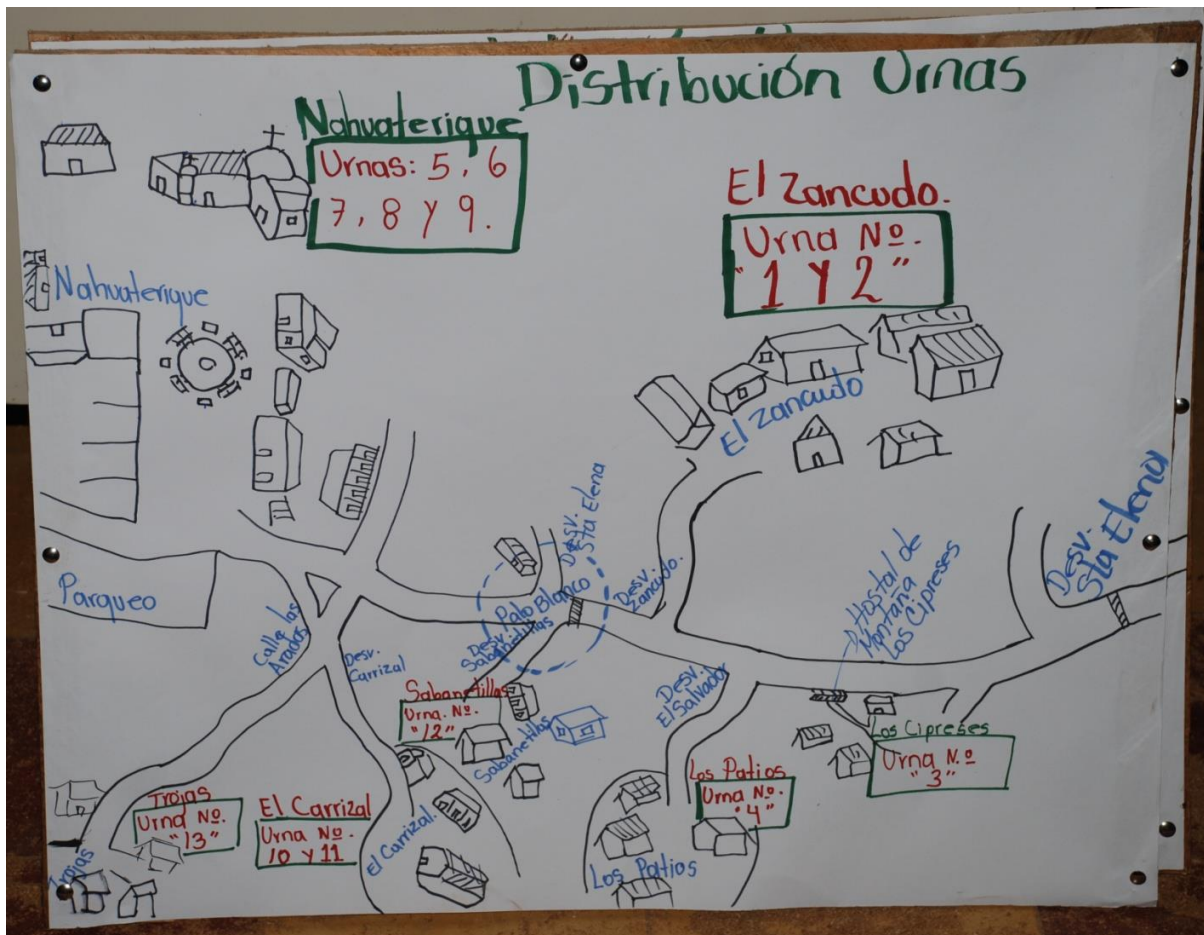 Distribución Urnas
Nahuaterique
Urnas: 5, 6
7, 8 y 9.
El Zancudo.
Urna Nº.
"1 Y 2"
Nahuaterique
El Zancudo
Parqueo
Calle las
Arados
Desv.
Carrizal
Desv.
Sta Elena
Palo Blanco
Desv.
Sabanetillas
Desv.
Zancudo.
Hostal de
Montaña
Los Cipreses
Desv.
Sta Elena
Desv.
El Salvador
Sabanetillas
Urna. Nº.
"12"
Sabanetillas
Los Cipreses
Urna Nº
"3"
Los Patios
Urna Nº.
"4"
Los Patios
Trojas
Urna Nº.
"13"
Trojas
El Carrizal
Urna Nº.
10 Y 11
El Carrizal.